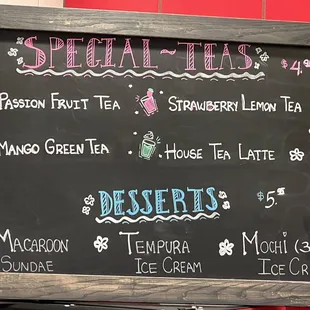 SPECIAL-TEAS
$4.
PASSION FRUIT TEA STRAWBERRY LEMON TEA
MANGO GREEN TEA HOUSE TEA LATTE
DESSERTS $5.
MACAROON TEMPURA MOCHI (3
SUNDAE ICE CREAM ICE CR